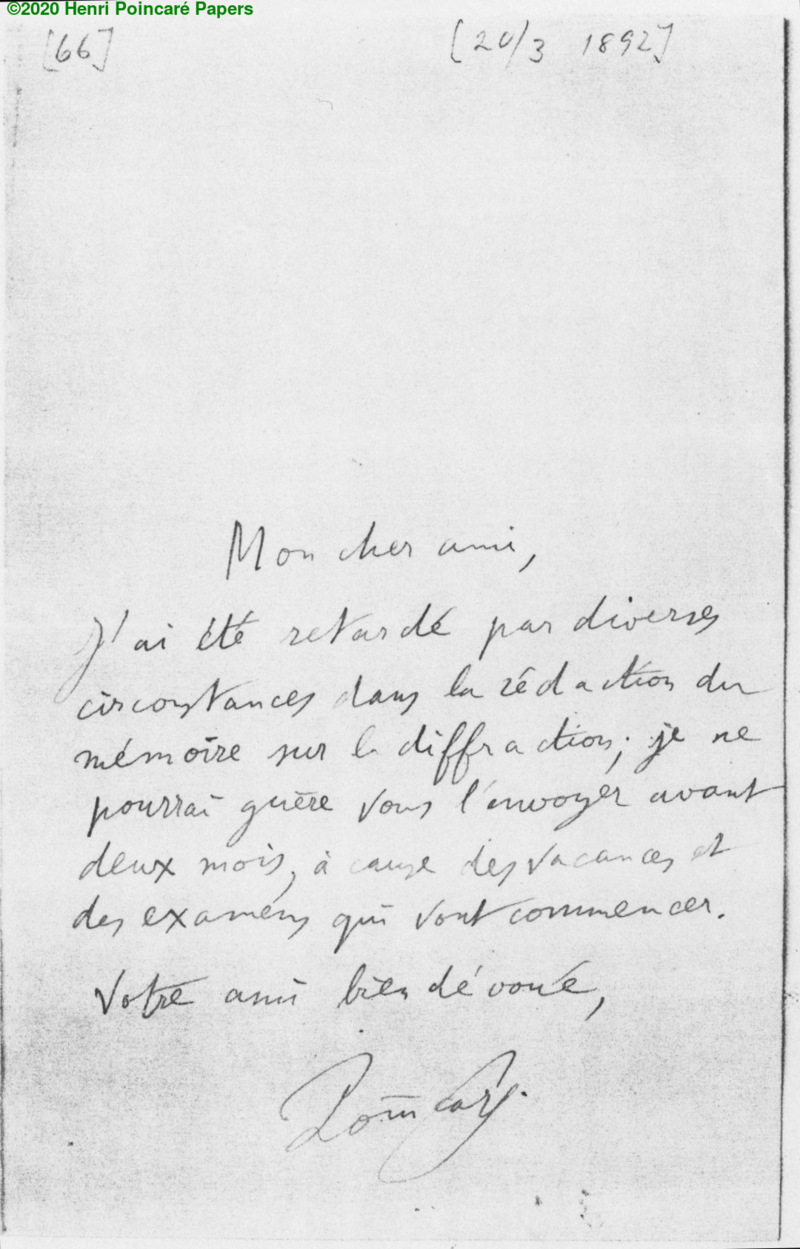 ©2020 Henri Poincaré Papers
[66]
[20/3 1892]
Mon cher ami,
J'ai été retardé par diverses
circonstances dans la rédaction du
mémoire sur la diffraction; je ne
pourrai guère vous l'envoyer avant
deux mois, à cause des vacances et
des examens qui vont commencer.
Votre ami bien dévoué,
Poincaré